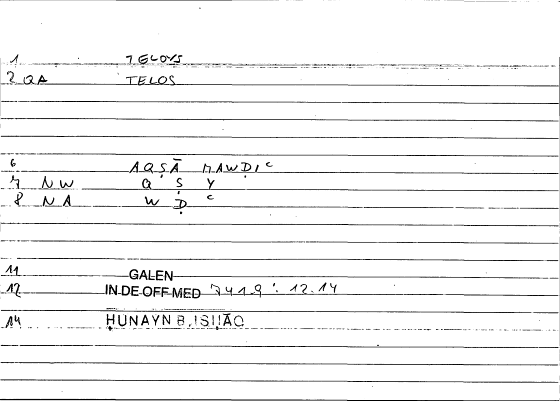 1 TELOYS
2 QA TELOS
6 AQṢĀ MAWḌIᶜ
7 NW Q Ṣ Y
8 NA W Ḍ ᶜ
11 GALEN
12 IN DE OFF MED 7419 : 12.14
14 ḤUNAYN B. ISḤĀQ